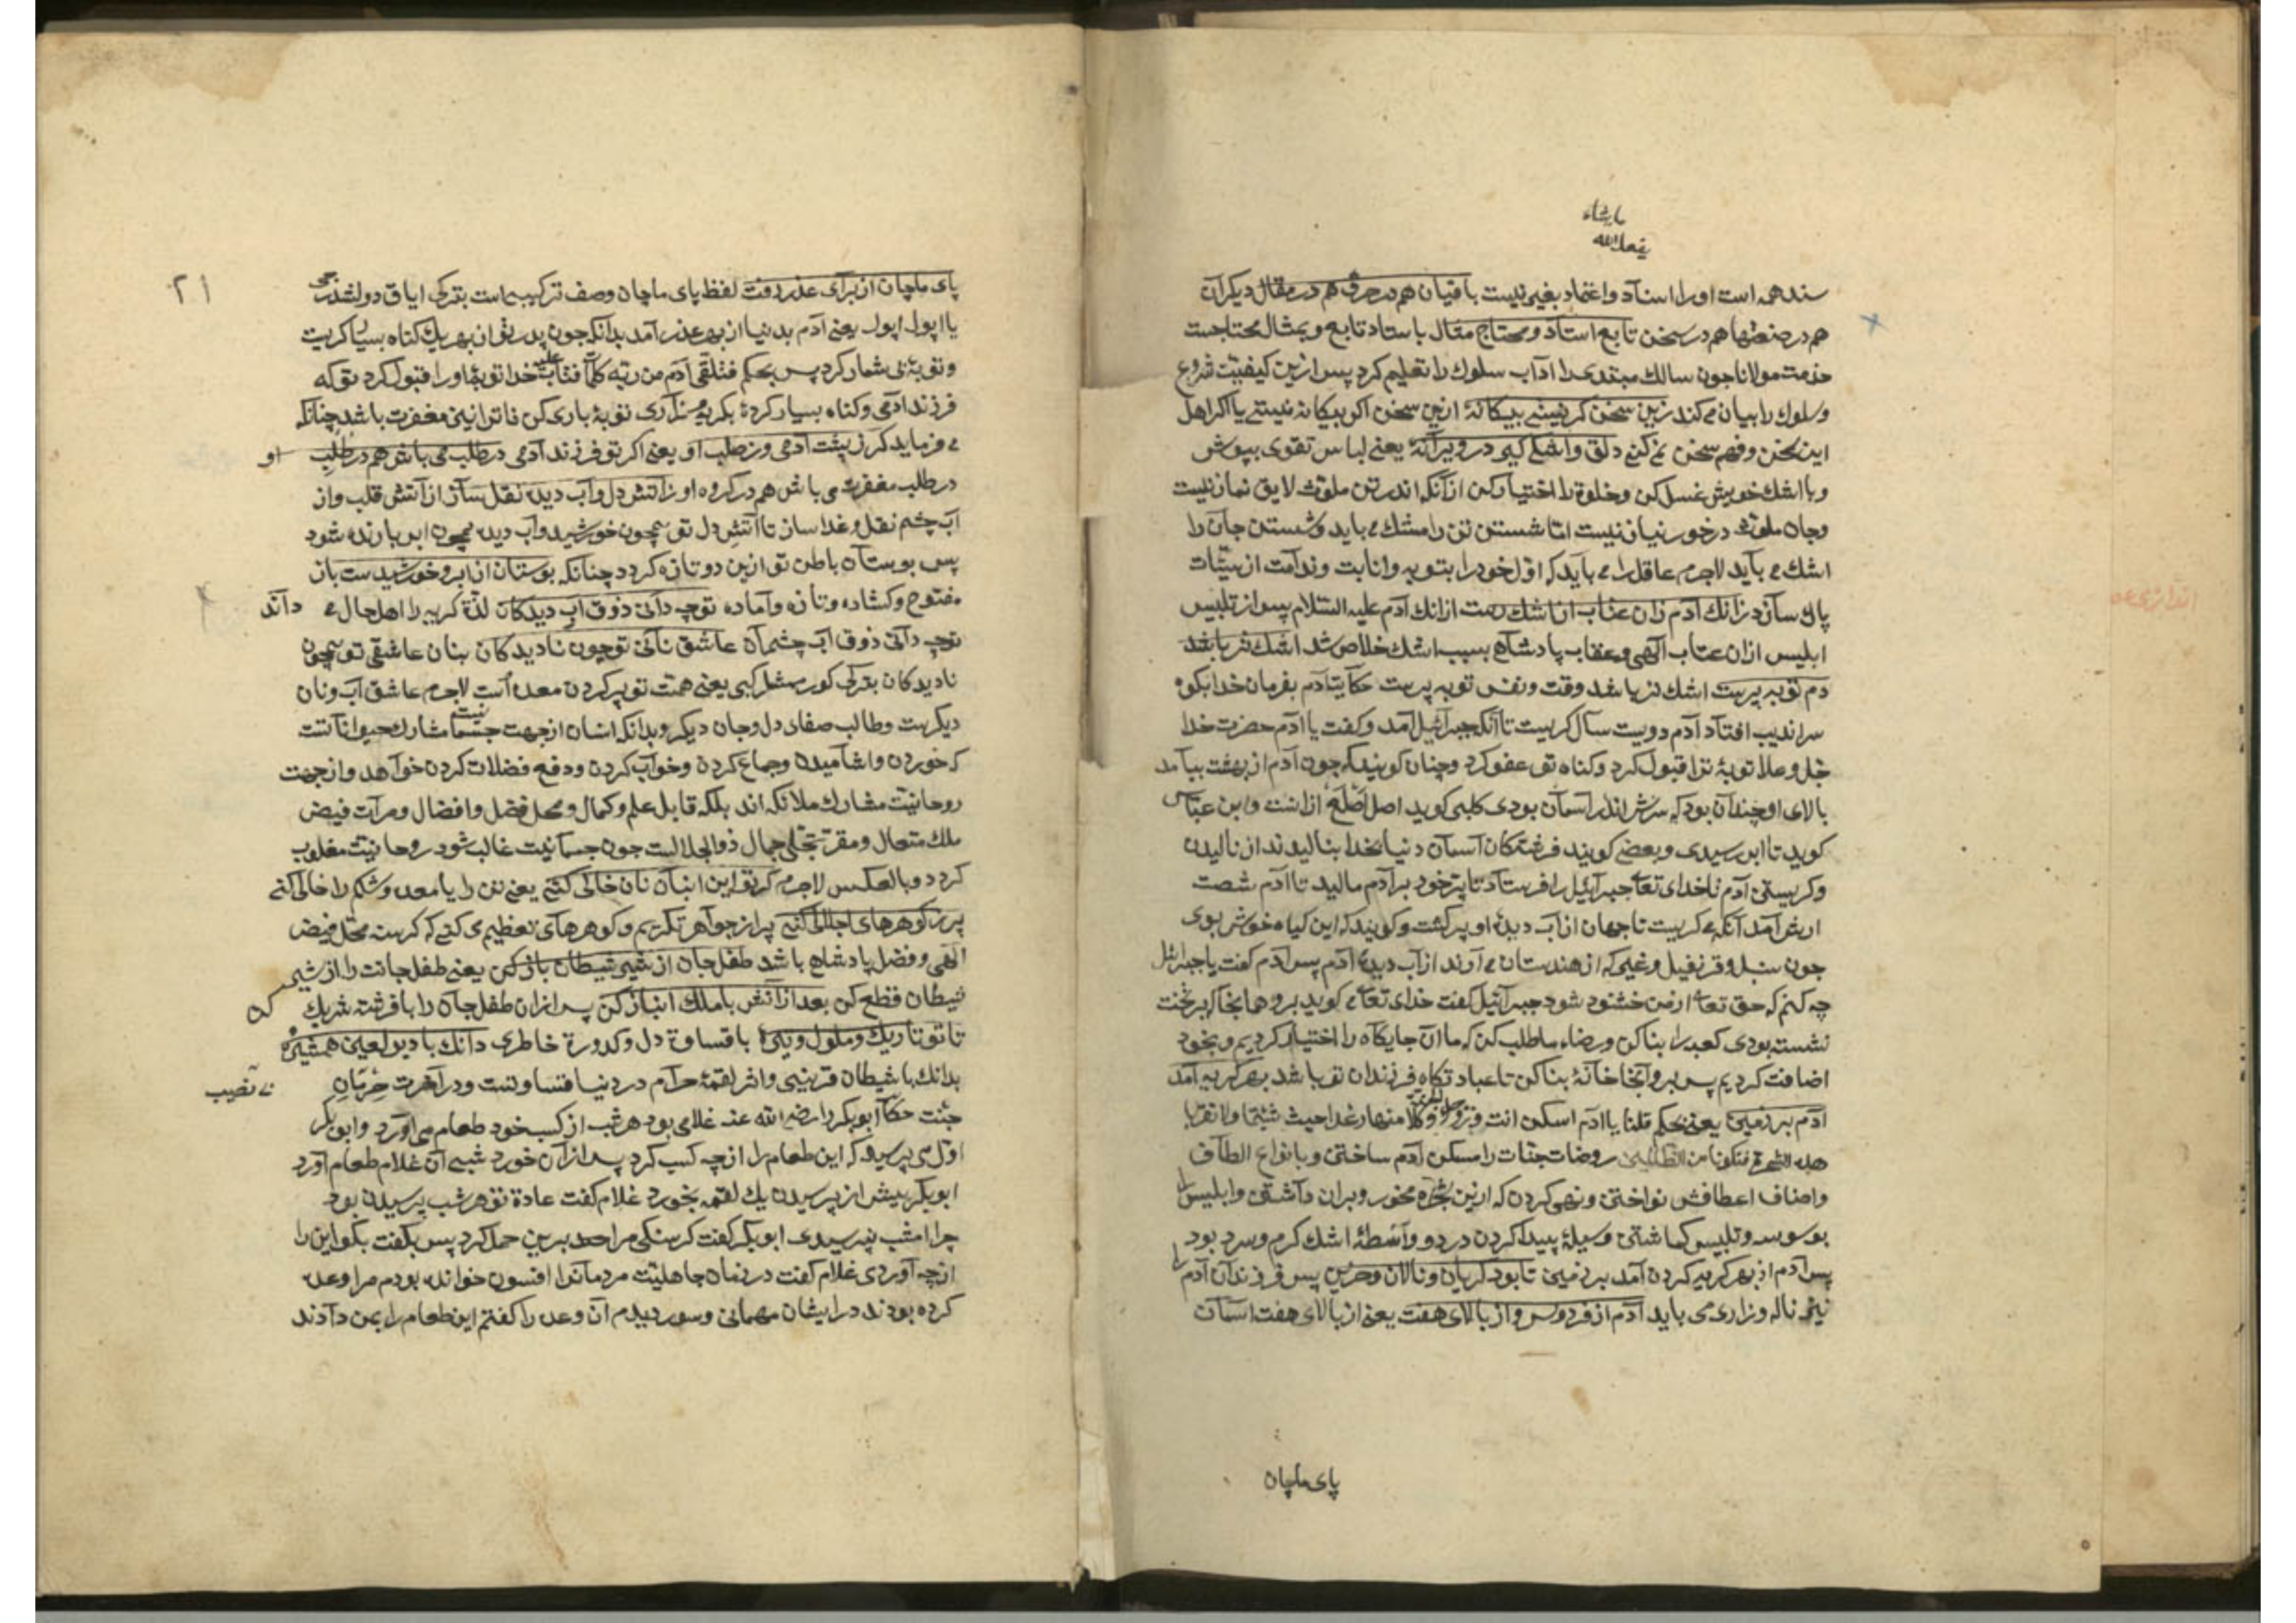 ما یشاء
یفعل الله
سند همه است او را اسناد و اعتماد بغیر نیست باقیان هم در حرف هم در مقال دیگران
هم در صنعتها هم در سخن تابع استاد و محتاج مثال باستاد تابع و بمثال محتاجست
حذمت مولانا جون سالک مبتدی را آداب سلوک را تعلیم کرد پس ازین کیفیت شروع
و سلوک را بیان می کند زین سخن کر نیستی بیکانهٔ ازین سخن اکر بیکانه نیستی یا اکر اهل
این سخن و فهم سخن می کنی دلق و اشکی کیر در ویرانهٔ یعنی لباس تقوی بپوش
و با اشک خویش غسل کن و خلوة را اختیار کن از آنکه اندر تن ملوث لایق نماز نیست
و جان ملوث درخور نیاز نیست اما شستن تن را مشک می باید و شستن جان را
اشک می باید لاجرم عاقل را می باید که اول خود را بتوبه و انابت و ندامت از سیئات
پاک سازد زانک آدم زان عتاب از اشک رست ازانک آدم علیه السلام پس از تلبیس
ابلیس ازان عتاب آلهی و عقاب پادشاهی بسبب اشک خلاص شد اشک تر باشد
دم توبه پرست اشک تر باشد وقت و نفس توبه پرست حکایت آدم بفرمان خدا بکوه
سراندیب افتاد آدم دویست سال کریست تا آنکه جبرائیل آمد و کفت یا ادم حضرت خدا
جل و علا توبهٔ ترا قبول کرد و کناه تو عفو کرد و چنان کویند که چون آدم از بهشت بیامد
بالای او چندان بود که سرش اندر آسمان بودی کلبی کوید اصل اصلع ازانست و ابن عباس
کوید تا ابر رسیدی و بعضی کویند فرشتکان آسمان دنیا بخدا بنالیدند از نالیدن
و کریستن آدم تا خدای تعا جبرآئیل را فرستاد تا پر خود بر آدم مالید تا آدم شصت
ارش آمد آنکه می کریست تا جهان از آب دیدهٔ او پر کشت و کویند که این کیاه خوش بوی
جون سنبل و قرنفیل و غیره که از هندستان می آورند از آب دیدهٔ آدم پس آدم کفت یا جبرائیل
چه کنم که حق تعا از من خشنود شود جبرآئیل کفت خدای تعا می کوید برو همانجا که بر تخت
نشسته بودی کعبه را بنا کن و رضاء ما طلب کن که ما آن جایکاه را اختیار کردیم و بخود
اضافت کردیم پس برو آنجا خانهٔ بنا کن تا عبادتکاه فرزندان تو باشد بهر کریه آمد
آدم بر زمین یعنی بحکم قلنا یا ادم اسکن انت و زوجک الجنة و کلا منها رغدا حیث شئتما ولا تقربا
هذه الشجرة فتکونا من الظالمین روضات جنات را مسکن آدم ساختن و بانواع الطاف
و اصناف اعطافش نواختن و نهی کردن که ازین شجره مخور و بران داشتن و ابلیس را
بوسوسه و تلبیس کماشتن وسیلهٔ پیدا کردن درد و واسطهٔ اشک کرم و سرد بود
پس آدم از بهر کریه کردن آمد بر زمین تا بود کریان و نالان و حزین پس فرزندان آدم را
نیز ناله و زاری می باید آدم از فردوس و از بالای هفت یعنی از بالای هفت اسمان
پای ماچان
۲۱
پای ماچان از برای عذر رفت لفظ پای ماچان وصف ترکیبیست بترکی ایاق
یا اپول اپول یعنی آدم بدنیا از بهر عذر آمد بدانکه جون پدر تو از بهر یک کناه بسیار کریست
و توبهٔ بی شمار کرد پس بحکم فتلقی آدم من ربه کلمات فتاب علیه خدا توبهٔ او را قبول کرد تو که
فرزند ادمی و کناه بسیار کردهٔ بکریه و زاری توبهٔ باری کن تا ترا نیز مغفرت باشد چنانکه
می فرماید کر ز پشت آدمی وز صلب او یعنی اکر تو فرزند آدمی در طلب می باش هم در طلب او
در طلب مغفرت می باش هم در کروه او ز آتش دل و آب دیده نقل ساز از آتش قلب و از
آب چشم نقل و غدا ساز تا آتش دل تو همچون خورشید و آب دیده همچون ابر بارنده شود
پس بوستان باطن تو ازین دو تازه کردد چنانکه بوستان از ابر و خورشیدست باز
مفتوح و کشاده و تازه و آماده تو چه دانی ذوق آب دیدکان لذة کریه را اهل حال می داند
تو چه دانی ذوق آب چشمان عاشق نانی تو چون نادیدکان بنان عاشقی تو همچون
نادیدکان بترکی کورمشلر کبی یعنی همت تو پر کردن معده است لاجرم عاشق آب و نان
دیکرست و طالب صفای دل و جان دیکر و بدانکه انسان از جهت جسمانیت مشارک حیواناتست
که خوردن و اشامیدن و جماع کردن و خواب کردن و دفع فضلات کردن خواهد و از جهت
روحانیت مشارک ملائکه اند بلکه قابل علم و کمال و محل فضل و افضال و مرآت فیض
ملک متعال و مقر تجلی جمال ذو الجلالست جون جسمانیت غالب شود روحانیت مغلوب
کردد و بالعکس لاجرم کر تو این انبان نان خالی کنی یعنی تن را یا معده و شکم را خالی کنی
پر ز کوهرهای اجلالی کنی پر از جواهر تکریم و کوهرهای تعظیم می کنی که کرسنه محل فیض
آلهی و فضل پادشاهی باشد طفل جان از شیر شیطان باز کن یعنی طفل جانت را از شیر
شیطان قطع کن بعد از آتش با ملک انباز کن پس ازان طفل جان را با فرشته شریک کن
تا تو تاریک و ملول و تیرهٔ با قساوة دل و کدورة خاطری دانک با دیو لعین همشیرهٔ
بدانک با شیطان قرینی و اثر لقمهٔ حرآم در دنیا قساوتست و در آخرت حرمان بی نصیب
جنت حکا ابوبکر را رضی الله عنه غلامی بود هر شب از کسب خود طعام می آورد و ابوبکر
اول می پرسید که این طعام را از چه کسب کرد پس ازان خورد شبی آن غلام طعام آورد
ابوبکر پیش از پرسیدن یک لقمه بخورد غلام کفت عادة تو هر شب پرسیدن بود
چرا امشب نپرسیدی ابوبکر کفت کرسنکی مرا برین حمل کرد پس بکفت بکو این را
از چه آوردی غلام کفت در زمان جاهلیت مردمانرا افسون خوانده بودم مرا وعده
کرده بودند در ایشان مهمانی و سور دیدم آن وعده را کفتم این طعام را بمن دادند